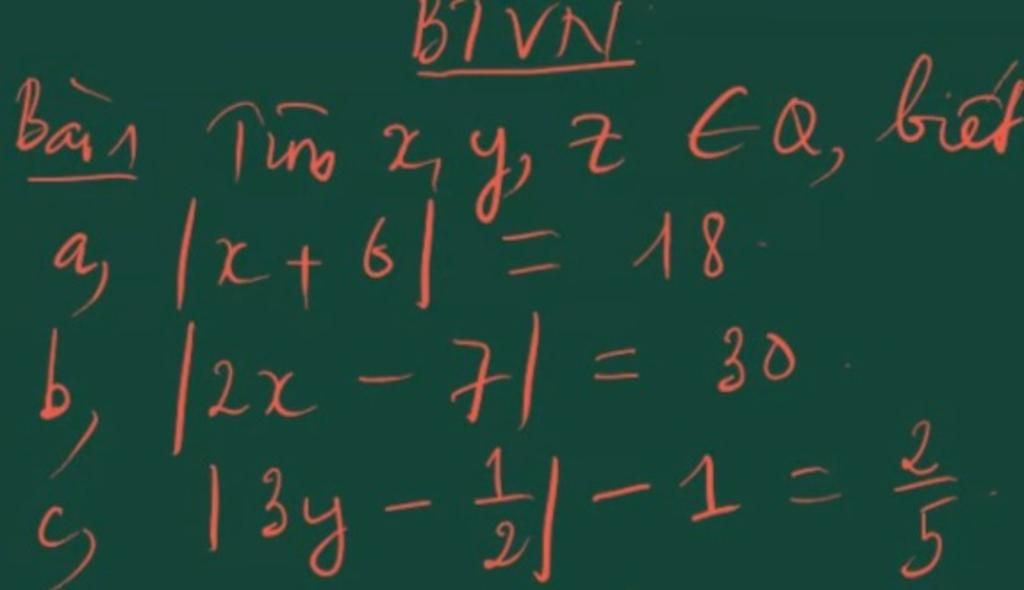 BTVN
Bài 1 Tìm x, y, z ∈ Q, biết
a, |x + 6| = 18.
b, |2x - 7| = 30.
c, |3y - 1/2| - 1 = 2/5.